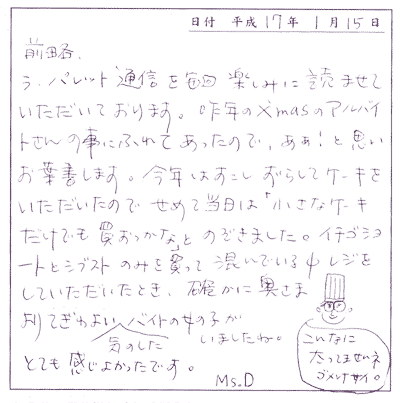 日付 平成17年 1月15日
前略、
ラ・パレット通信を毎回 楽しみに読ませて
いただいております。昨年のXmasのアルバイ
トさんの事にふれてあったので、あぁ!と思い
お葉書します。今年はすこしずらしてケーキを
いただいたので せめて当日は「小さなケーキ
だけでも買おっかな」と のぞきました。イチゴショ
ートとシブストのみを買って 混んでいる中 レジを
していただいたとき、確かに奥さま
よりてぎわよい バイトの女の子が
気のきいた いましたね。
とても感じよかったです。
Ms.D
こんなに
太ってませんネ
ゴメンナサイ。